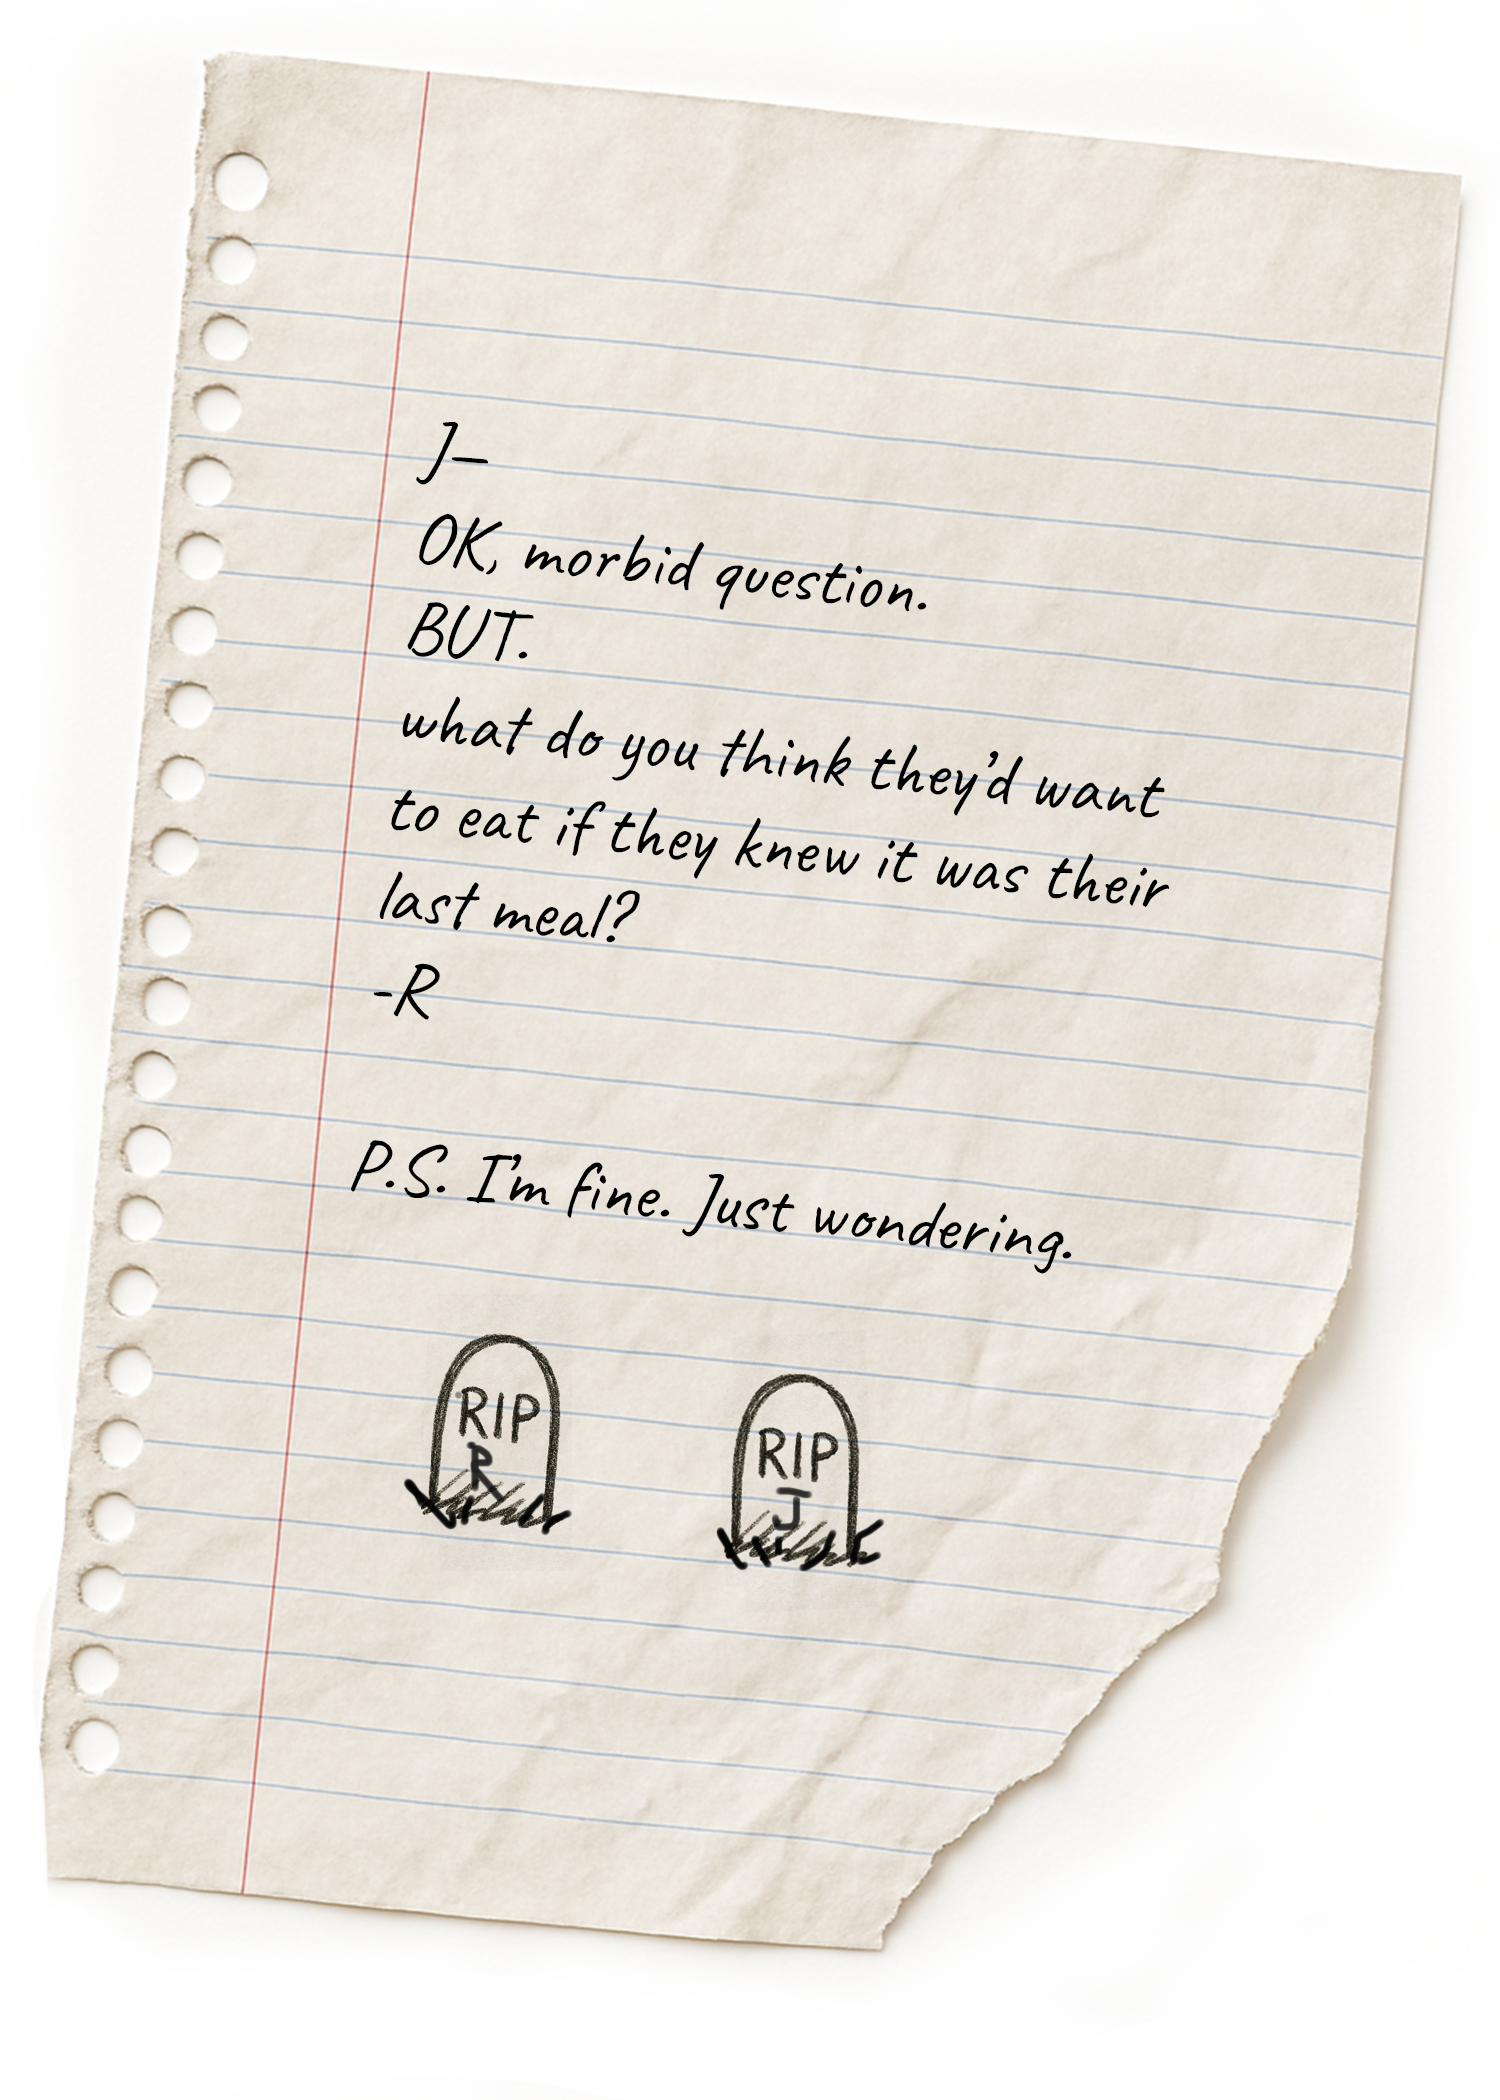 J—
OK, morbid question.
BUT.
what do you think they'd want
to eat if they knew it was their
last meal?
-R
P.S. I'm fine. Just wondering.
RIP
R
RIP
J